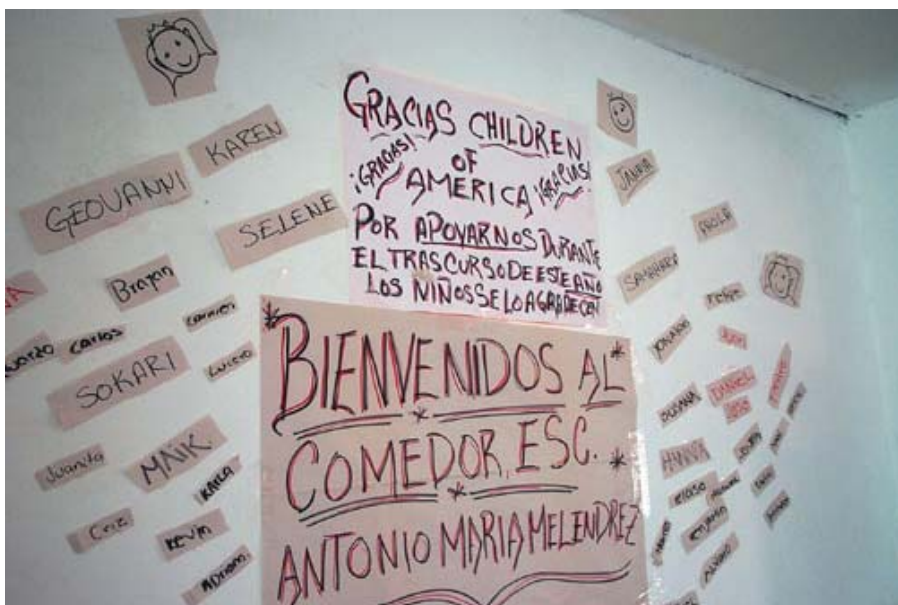 GRACIAS CHILDREN
OF
¡GRACIAS! AMERICA ¡GRACIAS!
POR APOYARNOS DURANTE
EL TRASCURSO DE ESTE AÑO
LOS NIÑOS SE LO AGRADECEN
*BIENVENIDOS AL*
COMEDOR, ESC.*
ANTONIO MARIA MELENDREZ
KAREN
GEOVANNI
SELENE
Brayan
carlos
carmen
SOKARI
Lucero
Juanito
MAIK.
KARLA
Criz
Kevin
ADRIAN
PAOLA
SAMAHARA
Felipe
SUSANA
DANIEL
JOSE
HANNA